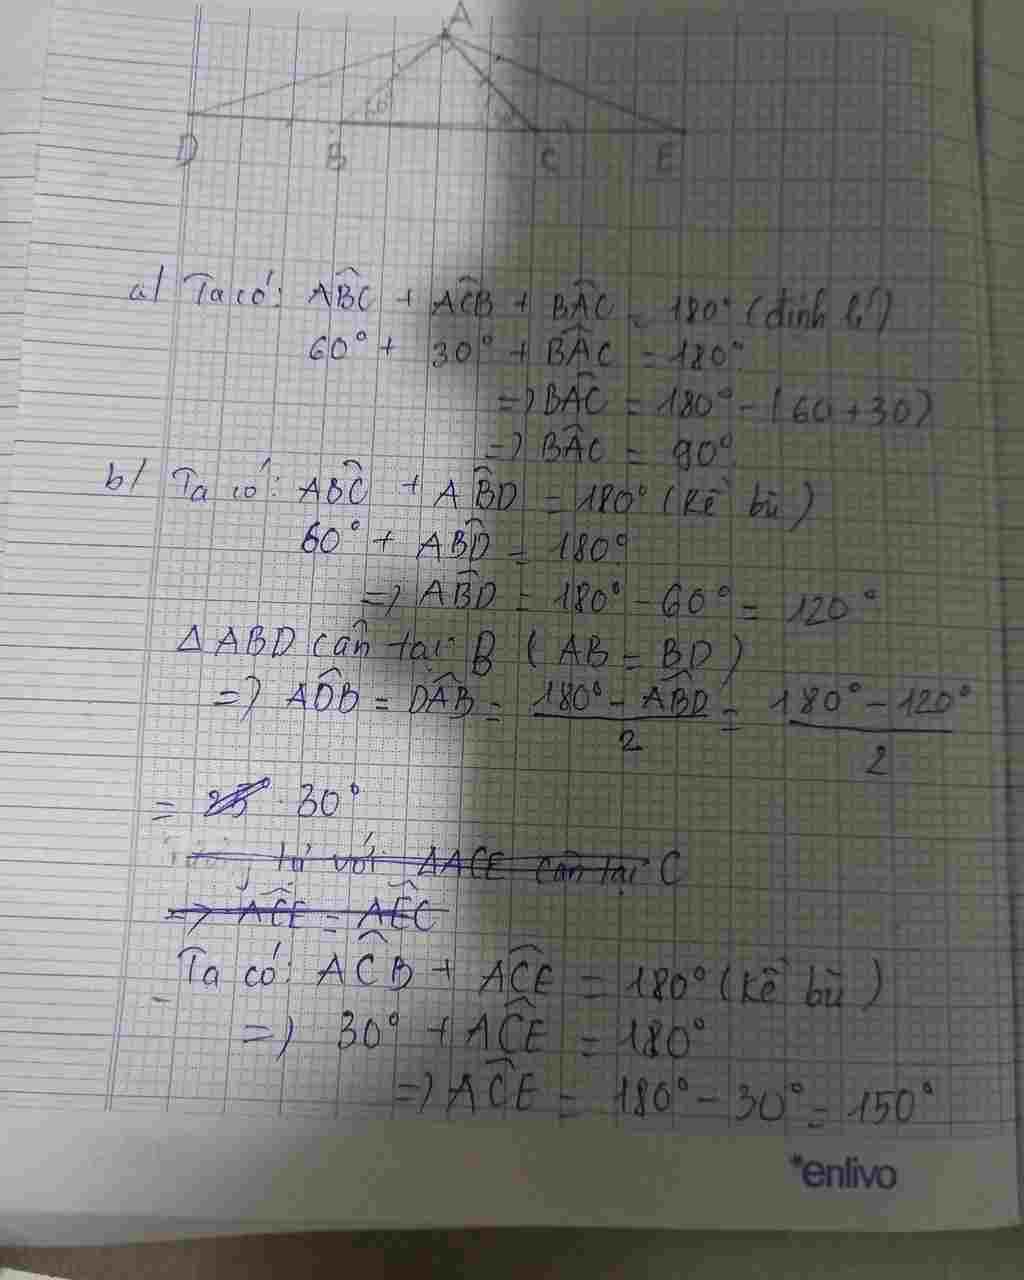 A
60°
D B C E
a/ Ta có: ABC + ACB + BAC = 180° (định lí)
60° + 30° + BAC = 180°
=> BAC = 180° - (60 + 30)
=> BAC = 90°
b/ Ta có: ABC + ABD = 180° (Kề bù)
60° + ABD = 180°
=> ABD = 180° - 60° = 120°
Δ ABD cân tại B (AB = BD)
=> ADB = DAB = 180° - ABD / 2 = 180° - 120° / 2
= 25 30°
tự với ΔACE cân tại C
=> ACE = AEC
Ta có: ACB + ACE = 180° (Kề bù)
=> 30° + ACE = 180°
=> ACE = 180° - 30° = 150°
enlivo